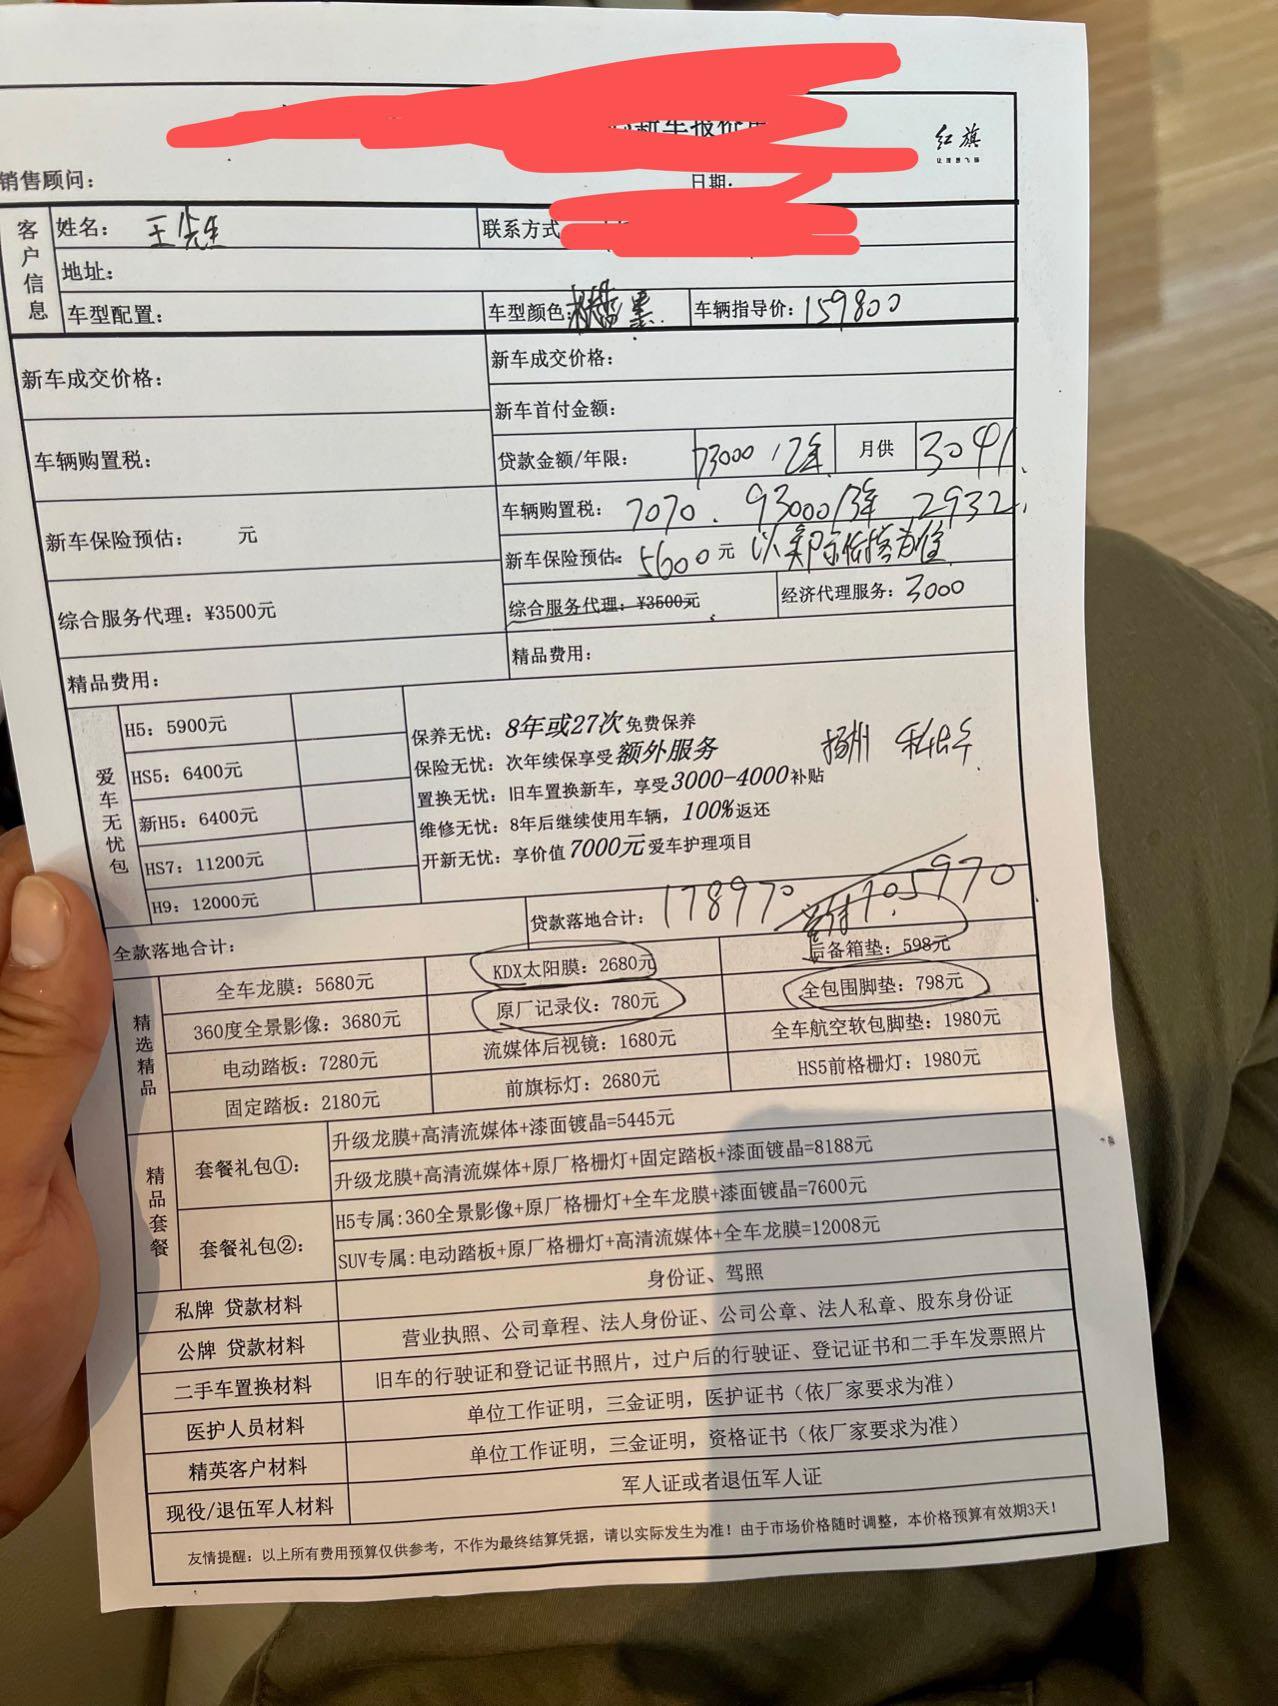 新车报价单
红旗
让理想飞扬
销售顾问：
日期：
客户信息
姓名： 王先生
联系方式
地址：
车型配置：
车型颜色： 黑
车辆指导价：159800
新车成交价格：
新车成交价格：
新车首付金额：
车辆购置税：
贷款金额/年限： 73000 / 2年 月供 3041
车辆购置税： 7070. 93000/3年 2932
新车保险预估： 元
新车保险预估： 5600元 以实际保撘为准
综合服务代理：¥3500元
综合服务代理：¥3500元
经济代理服务：3000
精品费用：
精品费用：
爱车无忧包
H5：5900元
HS5：6400元
新H5：6400元
HS7：11200元
H9：12000元
保养无忧：8年或27次免费保养
保险无忧：次年续保享受额外服务
置换无忧：旧车置换新车，享受3000-4000补贴
维修无忧：8年后继续使用车辆，100%返还
开新无忧：享价值7000元爱车护理项目
扬州
全款落地合计：
贷款落地合计： 178970 首付 105970
精选精品
全车龙膜：5680元
KDX太阳膜：2680元
后备箱垫：598元
360度全景影像：3680元
原厂记录仪：780元
全包围脚垫：798元
电动踏板：7280元
流媒体后视镜：1680元
全车航空软包脚垫：1980元
固定踏板：2180元
前旗标灯：2680元
HS5前格栅灯：1980元
精品套餐
套餐礼包①：
升级龙膜+高清流媒体+漆面镀晶=5445元
升级龙膜+高清流媒体+原厂格栅灯+固定踏板+漆面镀晶=8188元
套餐礼包②：
H5专属:360全景影像+原厂格栅灯+全车龙膜+漆面镀晶=7600元
SUV专属:电动踏板+原厂格栅灯+高清流媒体+全车龙膜=12008元
私牌 贷款材料
身份证、驾照
公牌 贷款材料
营业执照、公司章程、法人身份证、公司公章、法人私章、股东身份证
二手车置换材料
旧车的行驶证和登记证书照片，过户后的行驶证、登记证书和二手车发票照片
医护人员材料
单位工作证明，三金证明，医护证书（依厂家要求为准）
精英客户材料
单位工作证明，三金证明，资格证书（依厂家要求为准）
现役/退伍军人材料
军人证或者退伍军人证
友情提醒：以上所有费用预算仅供参考，不作为最终结算凭据，请以实际发生为准！由于市场价格随时调整，本价格预算有效期3天！